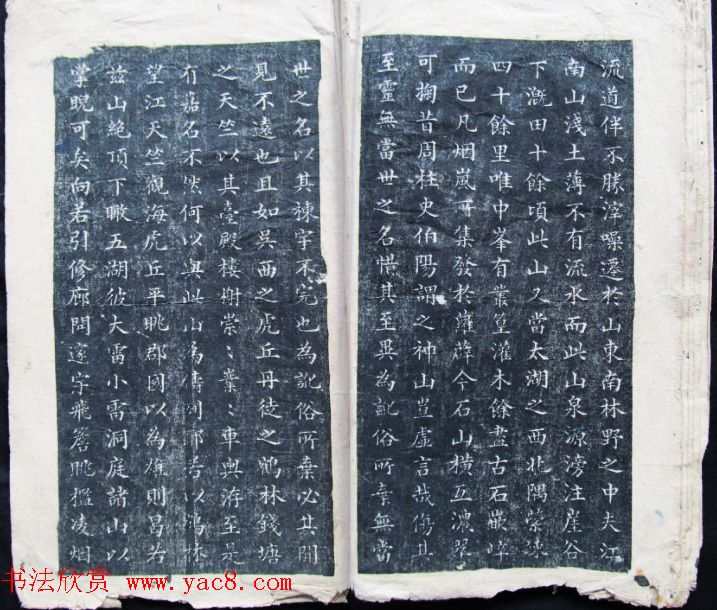 流道伴不勝滓噪遷於山東南林野之中夫江
南山淺土薄不有流水而此山泉源滂注崖谷
下溉田十餘頃此山又當太湖之西北隅縈竦
四十餘里唯中峯有叢篁灌木餘盡古石嵌崒
而已凡烟嵐所集發於蘿薜今石山橫亙濃翠
可掬昔周柱史伯陽謂之神山豈虛言哉傷其
至靈無當世之名惜其至異為訛俗所棄無當
世之名以其棟宇不完也為訛俗所棄必其聞
見不遠也且如吳西之虎丘丹徒之鶴林錢塘
之天竺以其臺殿樓榭崇〻業〻車輿洊至是
有嘉名不然何以與此山為儔列耶若以鶴林
望江天竺觀海虎丘平眺郡國以為雄則曷若
茲山絕頂下瞰五湖彼大雷小雷洞庭諸山以
掌睨可矣向若引修廊開邃宇飛簷眺檻凌烟
书法欣赏 www.yac8.com